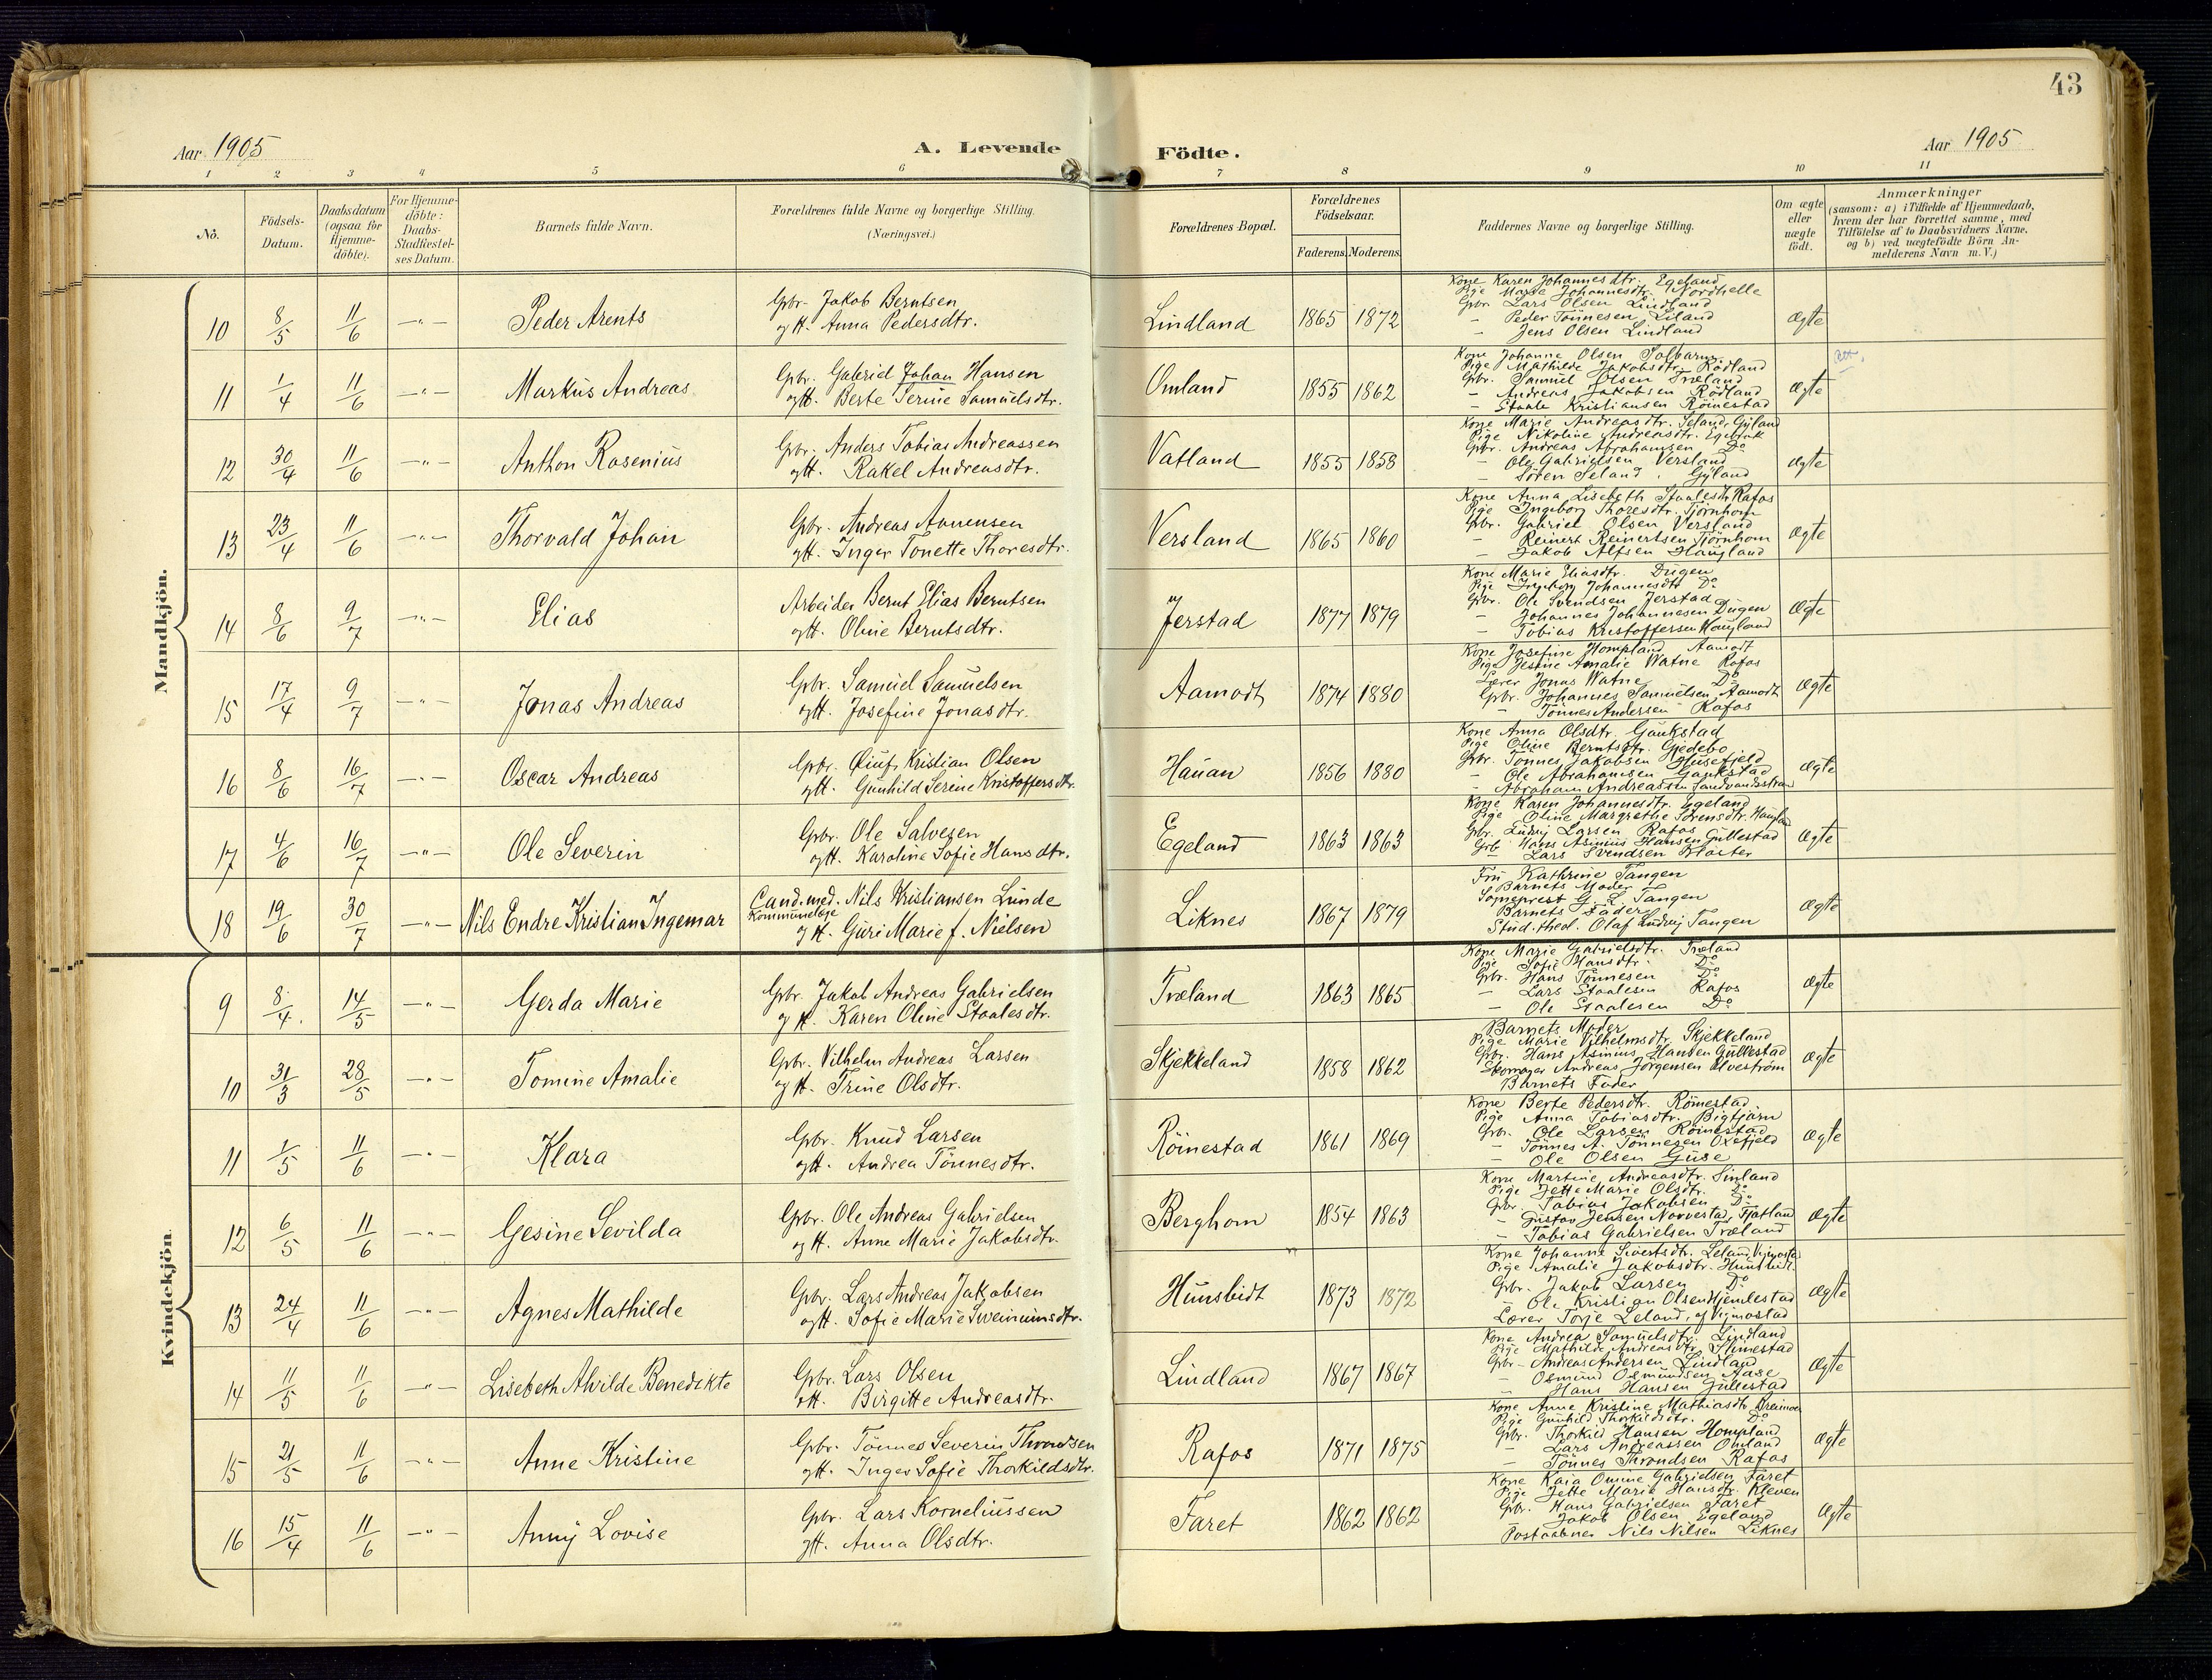 43
Aar 1905
A. Levende
Födte.
Aar 1905
1 2 3 4 5 6 7 8 9 10 11
No.
Födsels-
Datum.
Daabsdatum
(ogsaa for
Hjemme-
döbte).
For Hjemme-
döbte:
Daabs-
Stadfæstel-
ses Datum.
Barnets fulde Navn.
Forældrenes fulde Navne og borgerlige Stilling.
(Næringsvei.)
Forældrenes Bopæl.
Forældrenes
Födselsaar.
Faderens. Moderens.
Faddernes Navne og borgerlige Stilling.
Om ægte
eller
uægte
födt.
Anmærkninger
(saasom: a) i Tilfælde af Hjemmedaab,
hvem der har forrettet samme, med
Tilföielse af to Daabsvidners Navne,
og b) ved uægtefödte Börn An-
melderens Navn m. V.)
Mandkjön.
10 8/5 11/6 —"— Peder Arents
Gbr. Jakob Berntsen
og H. Anna Pedersdtr.
Lindland 1865 1872
Kone Karen Johannesdtr. Egeland
Pige Marie Johannesdtr. Nordhelle
Gbr. Lars Olsen Lindland
– Peder Tönnesen Liland
– Jens Olsen Lindland
Ægte
11 1/4 11/6 —"— Markus Andreas
Gbr. Gabriel Johan Hansen
og H. Berte Serine Samuelsdtr.
Omland 1855 1862
Kone Johanne Olsen
Pige Mathilde Jakobsdtr. Rödland
Gbr. Samuel Olsen Træland
– Andreas Jakobsen Rödland
– Staale Kristiansen Röinestad
Ægte
12 30/4 11/6 —"— Anthon Rosenius
Gbr. Anders Tobias Andreassen
og H. Rakel Andreasdtr.
Vatland 1855 1858
Kone Marie Andreasdtr. Seland Gyland
Pige Nikoline Andreasdtr.
Gbr. Andreas Abrahamsen Do
– Ole Gabrielsen Versland
– Sören Seland, Gyland
Ægte
13 23/4 11/6 —"— Thorvald Johan
Gbr. Andreas Aanensen
og H. Inger Tonette Thoresdtr.
Versland 1865 1860
Kone Anna Lisebeth Staalesdtr Rafos
Pige Ingeborg Thoresdtr. Tjörnhom
Gbr. Gabriel Olsen Versland
– Reinert Reinertsen Tjörnhom
– Jakob Alfsen Haugland
Ægte
14 8/6 9/7 —"— Elias
Arbeider Bernt Elias Berntsen
og H. Oline Berntsdtr.
Jerstad 1877 1879
Kone Marie Eliasdtr. Dugen
Pige Ingeborg Johannesdtr Do
Gbr. Ole Svendsen Jerstad
– Johannes Johannesen Dugen
– Tobias Kristoffersen Haugland
Ægte
15 17/4 9/7 —"— Jonas Andreas
Gbr. Samuel Samuelsen
og H. Josefine Jonasdtr.
Aamodt 1874 1880
Kone Josefine Hompland Aamodt
Pige Jesine Amalie Watne Rafos
Lærer Jonas Watne Do
Gbr. Johannes Samuelsen Aamodt
– Tönnes Andersen Rafos
Ægte
16 8/6 16/7 —"— Oscar Andreas
Gbr. Kristian Olsen
og H. Gunhild Serine Kristoffersdtr.
Hauan 1856 1880
Kone Anna Olsdtr. Gaukstad
Pige Oline Berntsdtr. Gjedebo
Gbr. Tönnes Jakobsen Husefjeld
– Ole Abrahamsen Gaukstad
– Abraham Andreassen Sandvandsstrand
Ægte
17 4/6 16/7 —"— Ole Severin
Gbr. Ole Salvesen
og H. Karoline Sofie Hansdtr.
Egeland 1863 1863
Kone Karen Johannesdtr. Egeland
Pige Oline Margrethe Sörensdtr.
Gbr. Ludvig Larsen Rafos
Gbr Hans Asinius Hansen Gullestad
– Lars Svendsen
Ægte
18 19/6 30/7 —"— Nils Endre Kristian Ingemar
Cand. med. Nils Kristiansen Lunde
Kommunelæge
og H. Guri Marie f. Nielsen
Liknes 1867 1879
Fru Kathrine Tangen
Barnets Moder
Sogneprest G. L. Tangen
Barnets Fader
Stud. theol. Olaf Ludvig Tangen
Ægte
Kvindekjön.
9 8/4. 14/5 —"— Gerda Marie
Gbr. Jakob Andreas Gabrielsen
og H. Karen Oline Staalesdtr.
Træland 1863 1865
Kone Marie Gabrielsdtr. Træland
Pige Sofie Hansdtr. Do
Gbr. Hans Tönnesen Do
– Lars Staalesen Rafos
– Ole Staalesen Do
Ægte
10 31/3 28/5 —"— Tomine Amalie
Gbr. Vilhelm Andreas Larsen
og H. Trine Olsdtr.
Skjekkeland 1858 1862
Barnets Moder
Pige Marie Vilhelmsdtr. Skjekkeland
Gbr. Hans Asinius Hansen Gullestad
Skomager Andreas Jörgensen Elveström
Barnets Fader
Ægte
11 1/5 11/6 —"— Klara
Gbr. Knud Larsen
og H. Andrea Tönnesdtr.
Röinestad 1861 1869
Kone Berte Pedersdtr. Röinestad
Pige Anna Tobiasdtr. Bigtjarn
Gbr. Ole Larsen Röinestad
– Tönnes A. Tönnesen Oxefjeld
– Ole Olsen Guse
Ægte
12 6/5 11/6 —"— Gesine Sevilda
Gbr. Ole Andreas Gabrielsen
og H. Anne Marie Jakobsdtr.
Berghom 1854 1863
Kone Martine Andreasdtr. Sinland
Pige Jette Marie Olsdtr. Do
Gbr Tobias Jakobsen Do
– Gustav Jensen Narvestad, Fjotland
– Tobias Gabrielsen Træland
Ægte
13 24/4 11/6 —"— Agnes Mathilde
Gbr. Lars Andreas Jakobsen
og H. Sofie Marie Sveinumsdtr.
Hunsbidt 1873 1872
Kone Johanne Sivertsdtr. Leland, Vigmostad
Pige Amalie Jakobsdtr. Hunsbidt
Gbr. Jakob Larsen Do
– Ole Kristian Olsen Hjemlestad
Lærer Torje Leland, af Vigmostad
Ægte
14 11/5 11/6 —"— Lisebeth Alvilde Benedikte
Gbr. Lars Olsen
og H. Birgitte Andreasdtr.
Lindland 1867 1867
Kone Andrea Samuelsdtr. Lindland
Pige Mathilde Andreasdtr. Slimestad
Gbr – Andreas Andersen Lindland
– Osmund Osmundsen Aase
– Hans Hansen Gullestad
Ægte
15 21/5 11/6 —"— Anne Kristine
Gbr. Tönnes Severin Throndsen
og H. Inger Sofie Thorkildsdtr.
Rafos 1871 1875
Kone Anne Kristine Mathiasdtr Dreimoen
Pige Gunhild Thorkildsdtr. Do
Gbr. Thorkild Hansen Hompland
– Lars Andreassen Omland
– Tönnes Throndsen Rafos
Ægte
16 15/4 11/6 —"— Anny Lovise
Gbr. Lars Korneliussen
og H. Anna Olsdtr.
Faret 1862 1862
Kone Kaia Omine Gabrielsen Faret
Pige Jette Marie Hansdtr. Kleven
Gbr. Hans Gabrielsen Faret
Jakob Olsen Egeland
Postaabner Nils Nilsen Liknes
Ægte